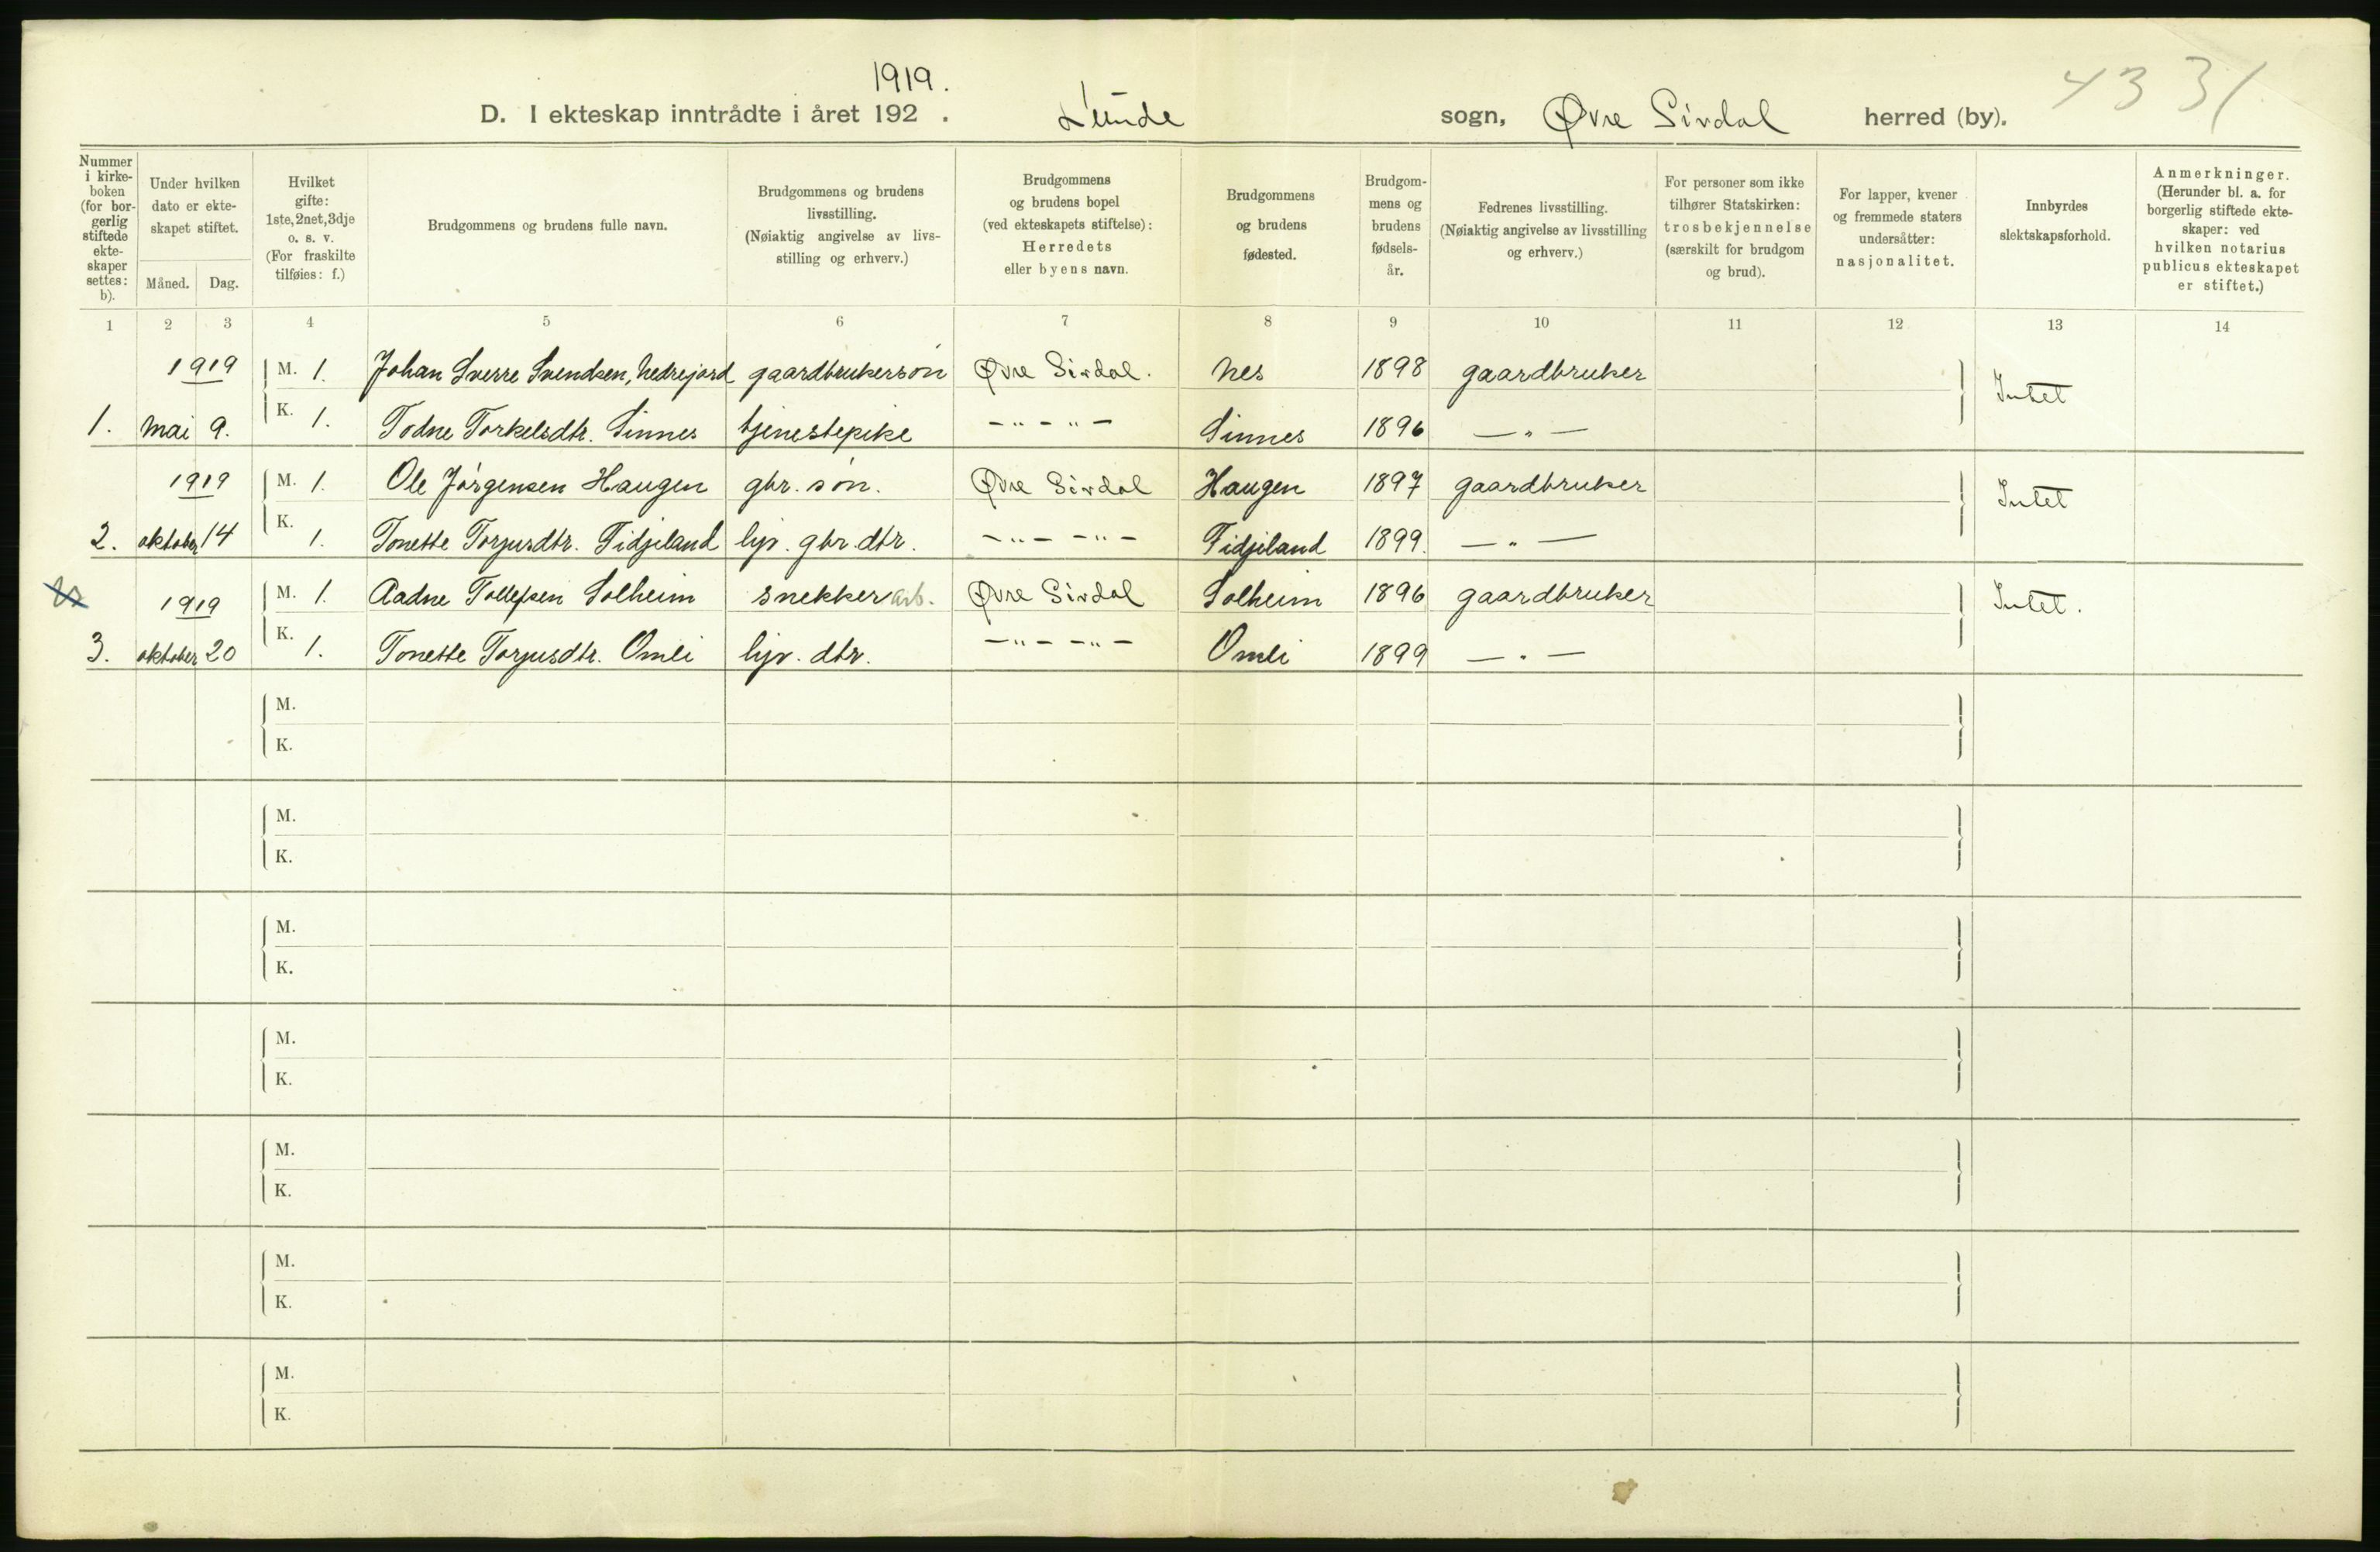 1919.
D. I ekteskap inntrådte i året 192 . Lunde sogn, Øvre Sirdal herred (by). 43 31
Nummer i kirke- boken (for bor- gerlig stiftede ekte- skaper settes: b).
Under hvilken dato er ekte- skapet stiftet.
Måned. Dag.
Hvilket gifte: 1ste, 2net, 3dje o. s. v. (For fraskilte tilføies: f.)
Brudgommens og brudens fulle navn.
Brudgommens og brudens livsstilling. (Nøiaktig angivelse av livs- stilling og erhverv.)
Brudgommens og brudens bopel (ved ekteskapets stiftelse): Herredets eller byens navn.
Brudgommens og brudens fødested.
Brudgom- mens og brudens fødsels- år.
Fedrenes livsstilling. (Nøiaktig angivelse av livsstilling og erhverv.)
For personer som ikke tilhører Statskirken: trosbekjennelse (særskilt for brudgom og brud).
For lapper, kvener og fremmede staters undersåtter: nasjonalitet.
Innbyrdes slektskapsforhold.
Anmerkninger. (Herunder bl. a. for borgerlig stiftede ekte- skaper: ved hvilken notarius publicus ekteskapet er stiftet.)
1 2 3 4 5 6 7 8 9 10 11 12 13 14
1919 M. 1. Johan Sverre Svendsen, Nedrejord gaardbrukersøn Øvre Sirdal. Nes 1898 gaardbruker Intet
1. mai 9. K. 1. Todne Torkelsdtr. Sinnes tjenestepike - " - " - Sinnes 1896 — " —
1919 M. 1. Ole Jørgensen Haugen gbr. søn. Øvre Sirdal Haugen 1897 gaardbruker Intet
2. oktober 14 K. 1. Tonette Torjusdtr. Fidjeland hjv. gbr. dtr. - " - - " - Fidjeland 1899. — " —
1919 M. 1. Aadne Tollefsen Solheim snekker arb. Øvre Sirdal Solheim 1896 gaardbruker Intet.
3. oktober 20 K. 1. Tonette Torjusdtr. Omli hjv. dtr. - " - - " - Omli 1899 — " —
M.
K.
M.
K.
M.
K.
M.
K.
M.
K.
M.
K.
M.
K.